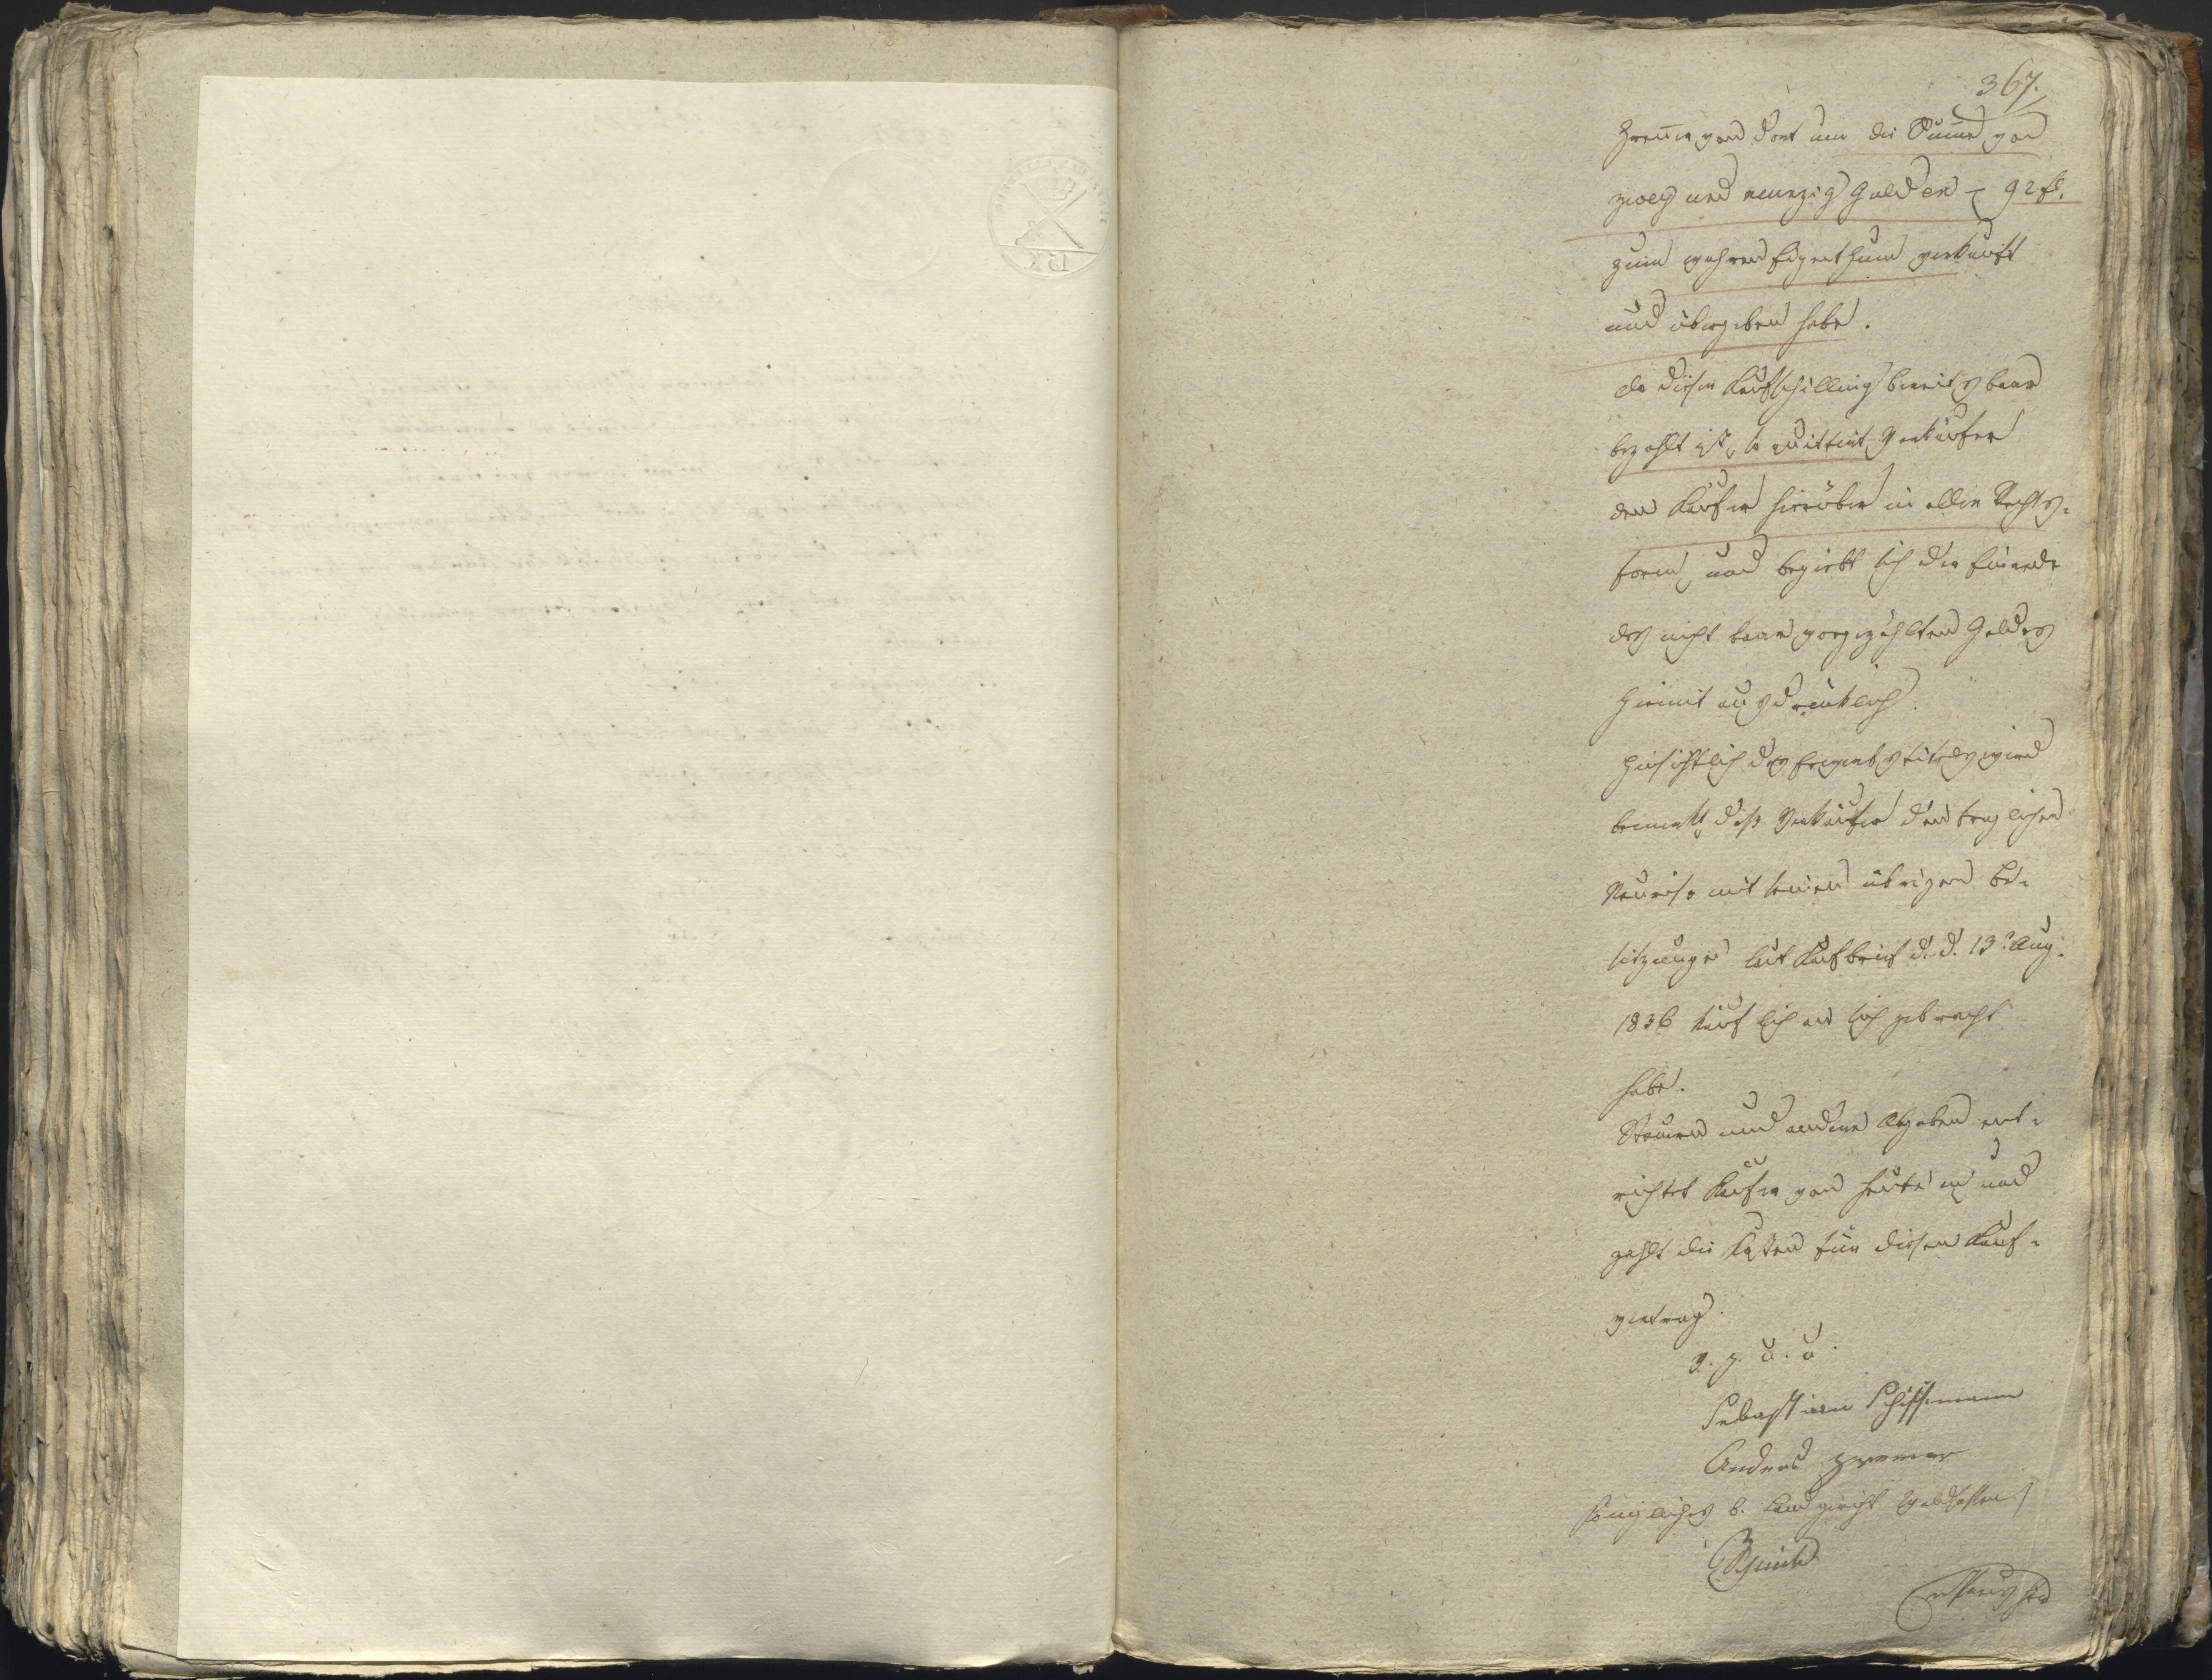 367.
Zremer von dort um die Summe von
zwey und neunzig Gulden = 92 fl.
zum wahren Eigenthum verkauft
und übergeben habe.
Da dieser Kaufschilling bereits baar
bezahlt ist, so quittirt Verkäufer
den Käufer hierüber in aller Rechts-
form, und begiebt sich der Einrede
des nicht baar vorgezählten Geldes
hiemit ausdrücklich.
Hinsichtlich des Erwerbstitels wird
bemerkt, daß Verkäufer den fraglichen
mit seinen übrigen Be-
sitzungen laut Kaufbrief d. d. 13 Aug.
1836 käuflich an sich gebracht
habe.
Steuern und andere Abgaben ent-
richtet Käufer von heute an und
zahlt die Kosten für diesen Kauf-
vertrag.
V. g. u. u.
Sebastian Schiffmann
Andreas
Königliches b. Landgericht Waldsassen